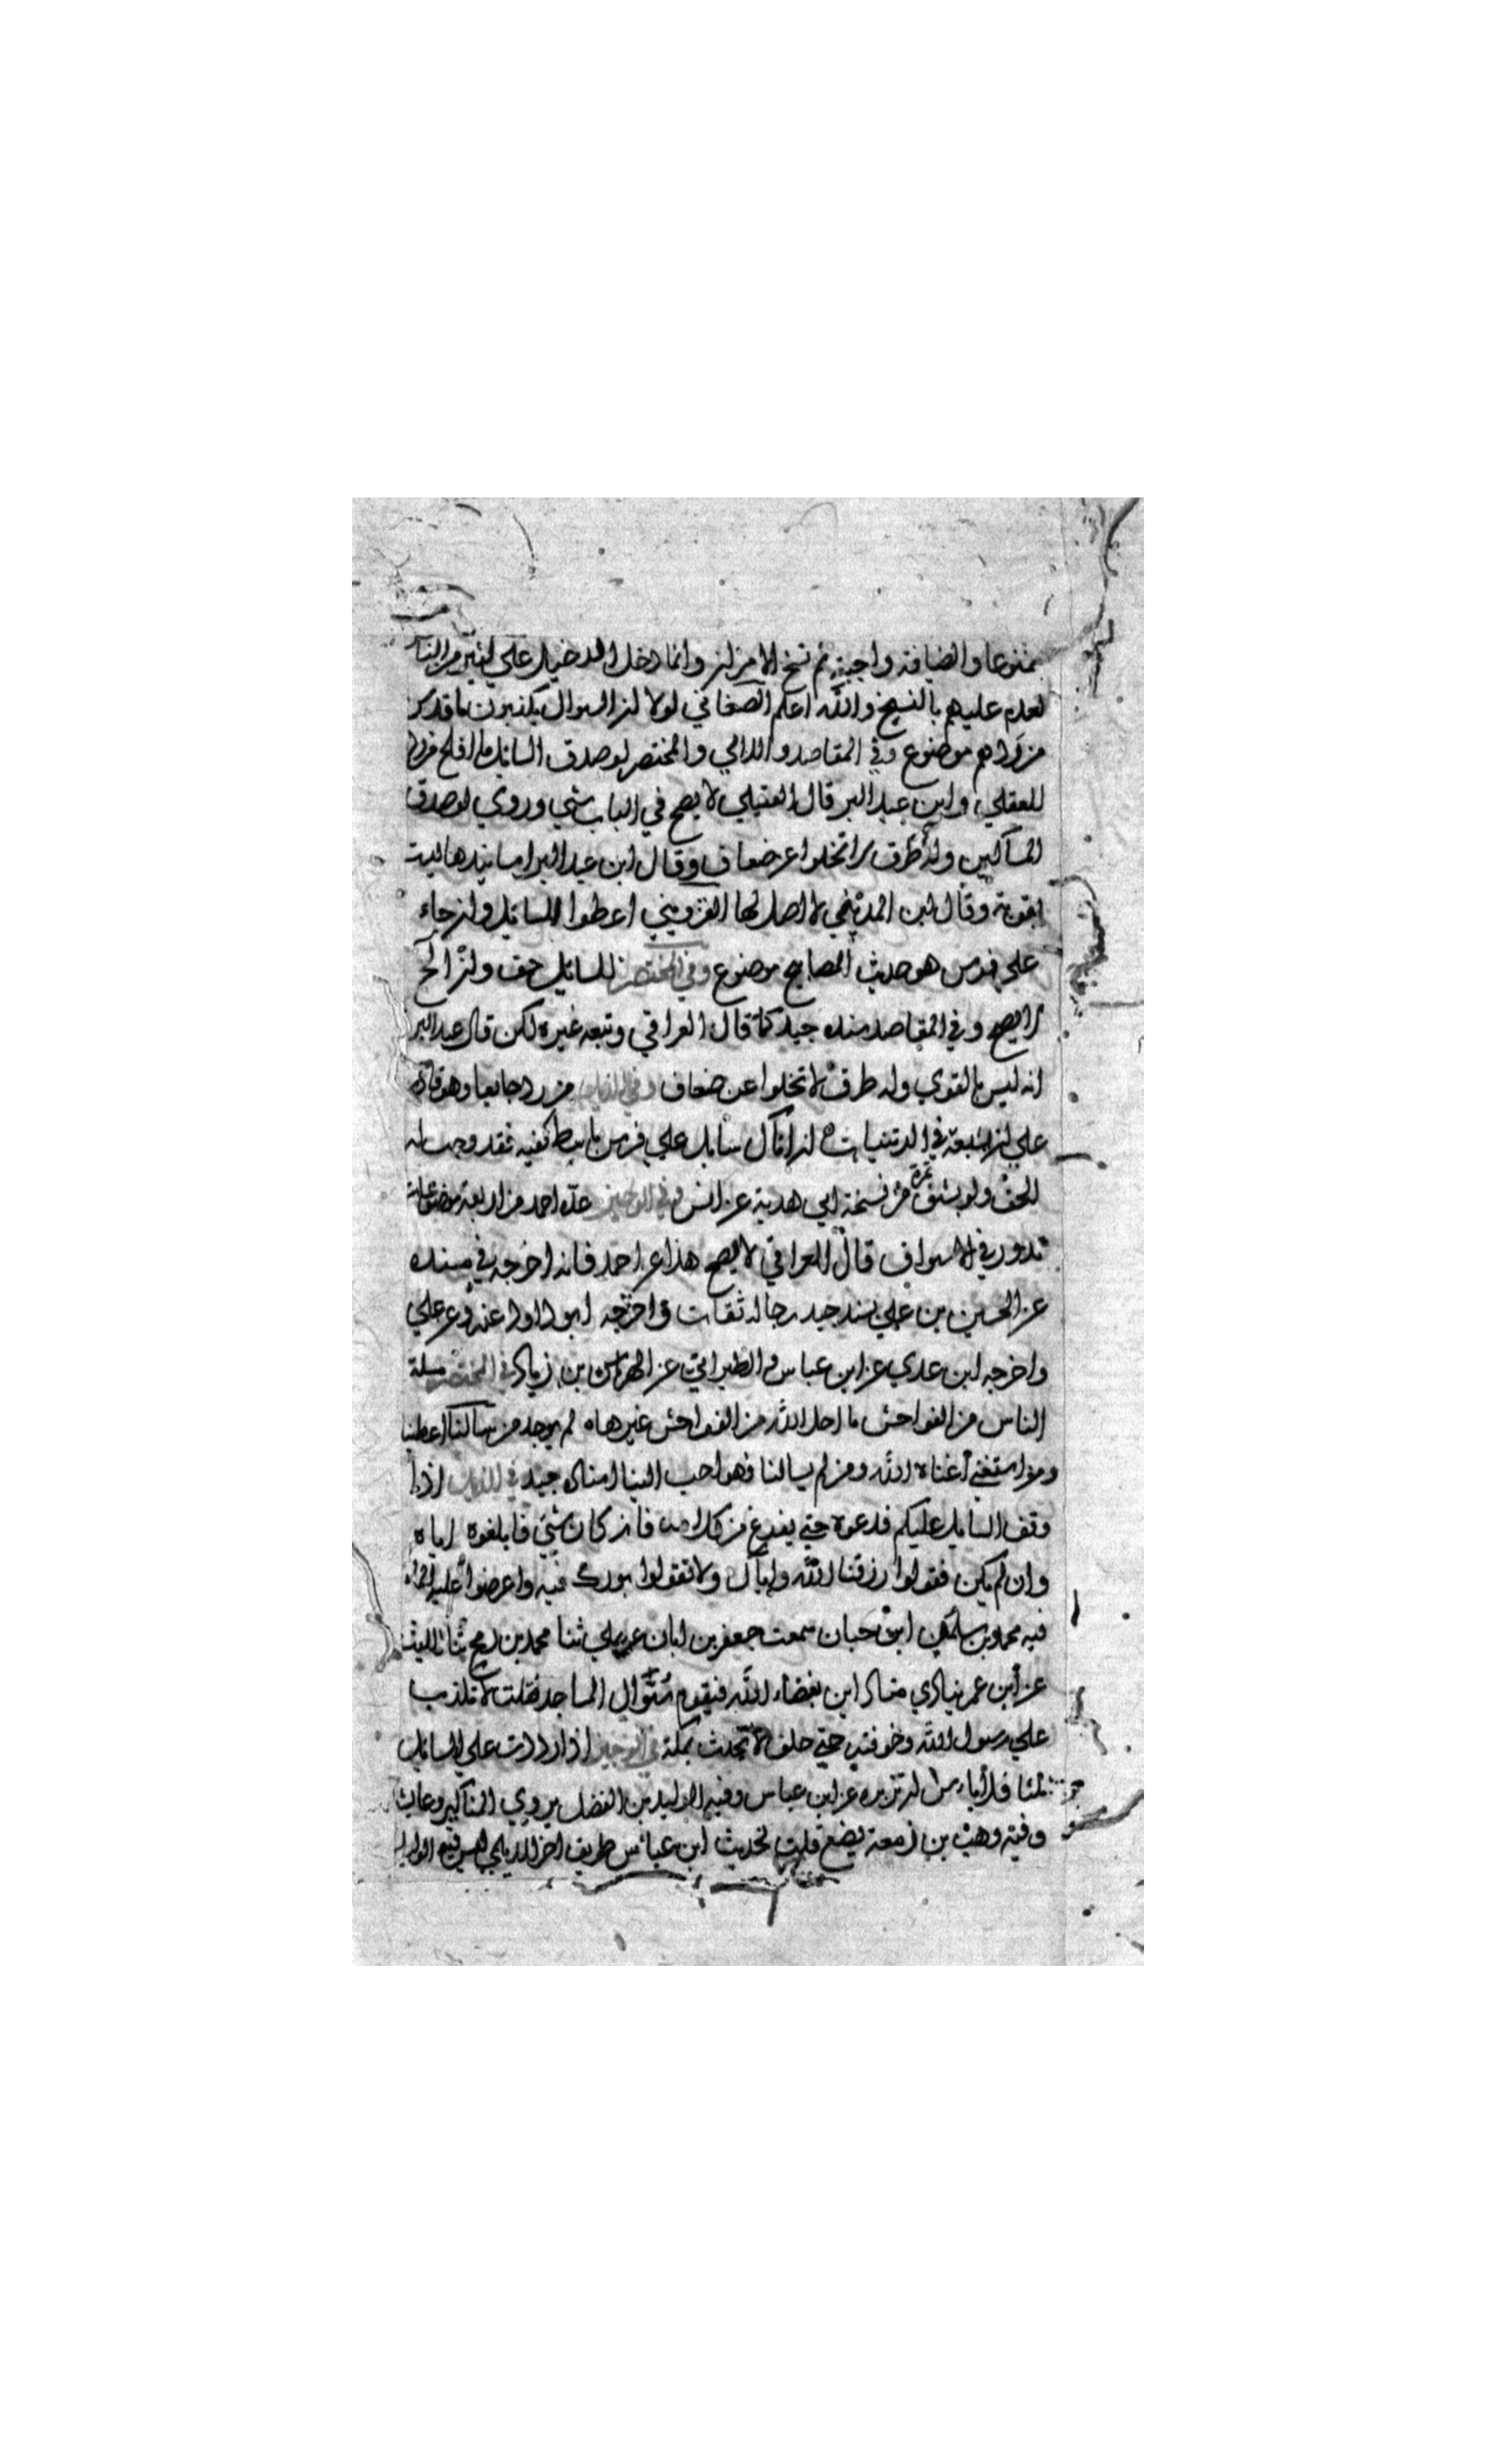 ممنوعا والضيافة واجبة ثم نسخ الامران وانما دخل الدخيل علي كثير من الناس
لعدم علمهم بالنسخ والله اعلم الصغاني لولا ان السوال يكذبون ما قدس
من ردهم موضوع وفي المقاصد واللالي والمختصر لو صدق السائل ما افلح من رده
للعقيلي وابن عبد البر قال العقيلي لا يصح في الباب شي وروي لو صدق
المساكين وله طرق لا تخلوا عن ضعاف وقال ابن عبد البر اسانيدها ليست
بقوية وقال ابن المديني لا اصل لها القزويني اعطوا السائل وان جاء
علي فرس هو حديث المصابيح موضوع وفي المختصر للسائل حق وان الخ
لا يصح وفي المقاصد سنده جيد كما قال العراقي وتبعه غيره لكن قال عبد البر
انه ليس بالقوي وله طرق لا تخلوا عن ضعاف وفي الذيل من رد جائعا وهو قادر
علي ان يشبعه في ان اتاك سايل علي فرس باسط كفيه فقد وجب له
الحق ولو بشق تمرة من نسخة ابي هدبة عن انس وفي الوجيز عده احمد من اربعة موضوعات
تدور في الاسواق قال العراقي لا يصح هذا عن احمد فانه اخرجه في مسنده
عن الحسين بن علي بسند جيد رجاله ثقات واخرجه ابو داود عنه وعن علي
واخرجه ابن عدي عن ابن عباس والطبراني عن الهرماس بن زياد في المختصر مسئلة
الناس من الفواحش ما احل الله من الفواحش غيرها لم يوجد من سالنا اعطينا
ومن استغني اغناه الله ومن لم يسالنا فهو احب الينا اسناده جيد في الذيل اذا
وقف السايل عليكم فدعوه حتي يفرغ من كلامه فان كان شي فابلغوه اياه
وان لم يكن فقولوا رزقنا الله واياك ولا تقولوا بورك فيه واعرضوا عليه الماء
فيه محمد بن ابن حبان سمعت جعفر بن ابان يملي ثنا محمد بن رمح ثنا الليث
عن ابن عمر ينادي مناد اين بغضاء الله فيقوم سوال المساجد فقلت لا تكذب
علي رسول الله وخوفته حتي حلف لا تحدث بمكة في الوجيز اذا رددت علي السائل
ثلثا فلا باس ان تزبره عن ابن عباس وفيه الوليد بن الفضل يروي المناكير وعايشة
وفيه وهب بن زمعة يضع قلت لحديث ابن عباس طريق اخر للديلمي ليس فيه الوليد